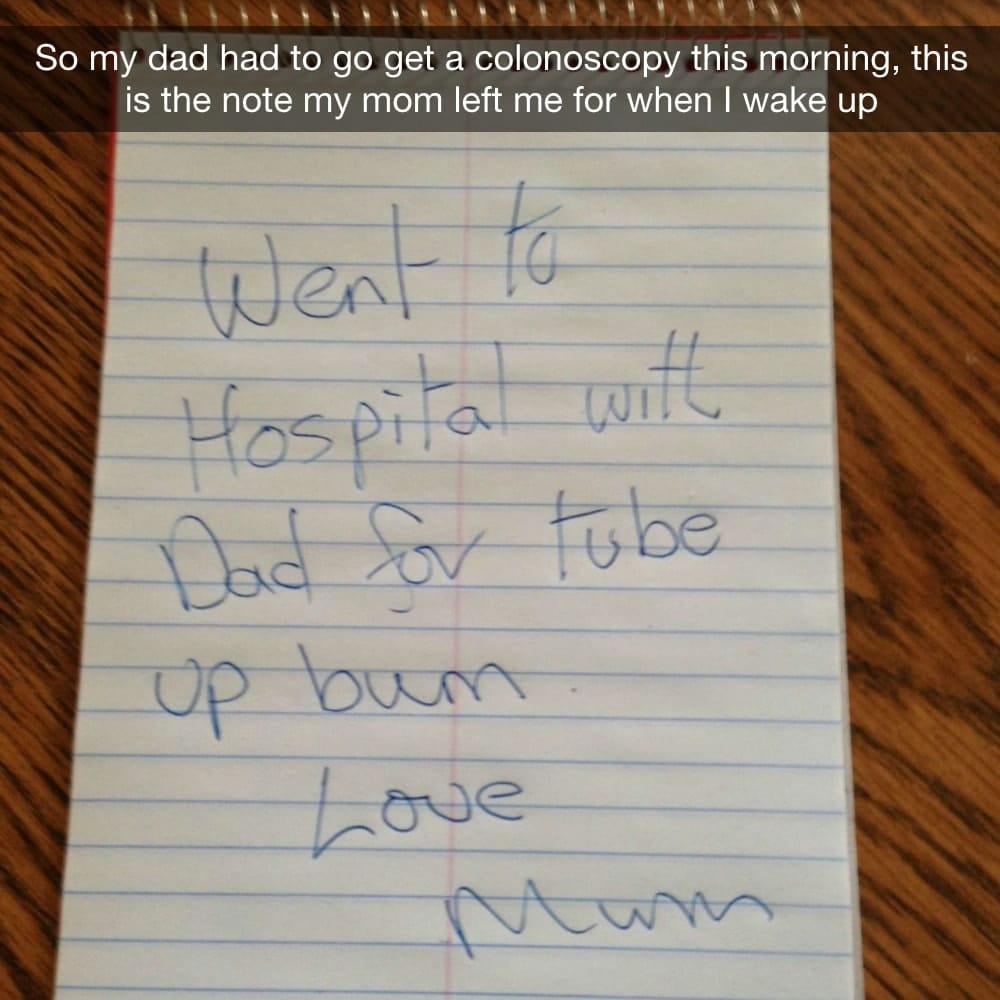 So my dad had to go get a colonoscopy this morning, this
is the note my mom left me for when I wake up
Went to
Hospital with
Dad for tube
up bum.
Love
Mum